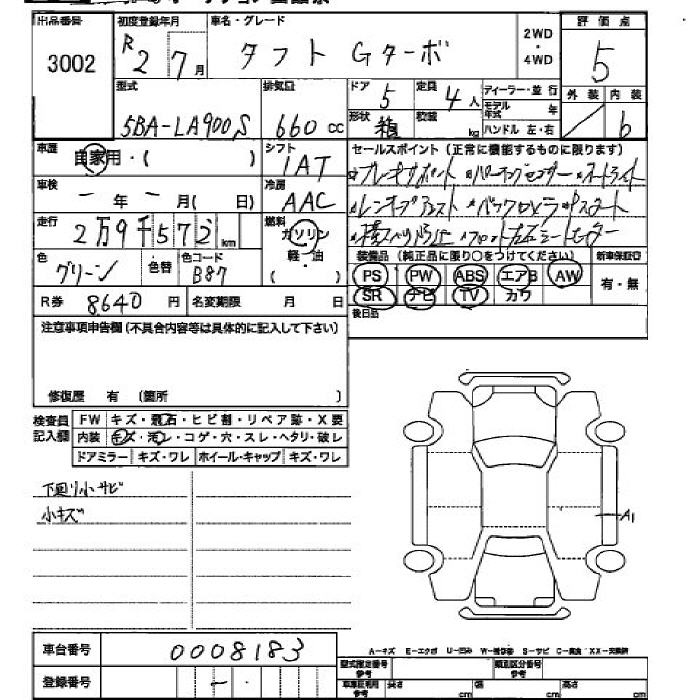 出品番号 初度登録年月 車名・グレード 評価点
3002 R2 7月 タフト Gターボ 2WD・4WD 5
型式 排気量 ドア 5 定員 4人 ディーラー・並行 外装 内装
5BA-LA900S 660cc 形状 箱 積載 kg モデル年式 年 ハンドル 左・右 6
車歴 自家用・( ) シフト IAT セールスポイント(正常に機能するものに限ります)
車検 ー年ー月( 日) 冷房 AAC
走行 2万9千572km 燃料 ガソリン・軽・油( )
色 グリーン 色替 色コード B87
装備品(純正品に限り○をつけてください) 新車保証書
PS PW ABS エアB AW 有・無
SR ナビ TV カワ
R券 8640円 名変期限 月 日
後日品
注意事項申告欄(不具合内容等は具体的に記入して下さい)
修復歴 有(箇所 )
検査員記入欄
FW キズ・飛石・ヒビ割・リペア跡・X要
内装 キズ・汚レ・コゲ・穴・スレ・ヘタリ・破レ
ドアミラー キズ・ワレ ホイール・キャップ キズ・ワレ
下廻り小サビ
小キズ
A1
車台番号 0008183
A-キズ E-エクボ U-凹み W-補修跡 S-サビ C-腐食 XX-交換済
登録番号 ー
型式指定番号 参考 類別区分番号 参考
長さ cm 幅 cm 高さ cm